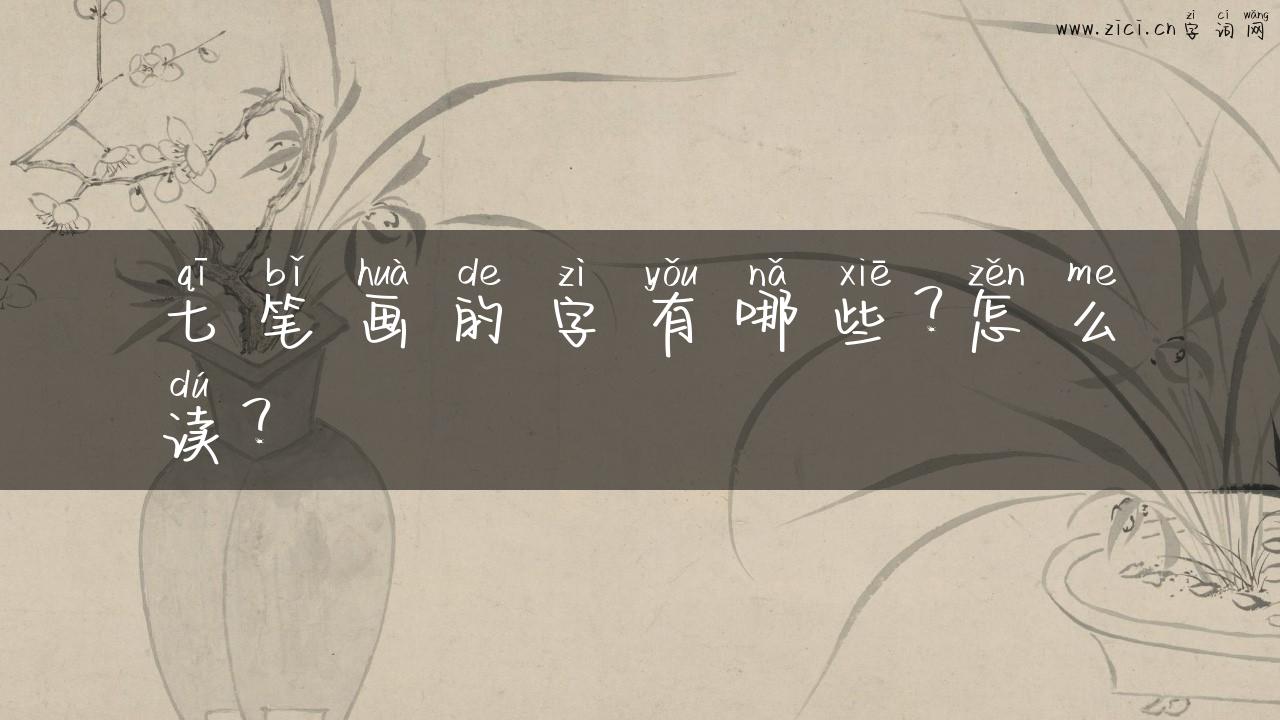 zì cí wǎng
www.zici.cn 字词网
qī bǐ huà de zì yǒu nǎ xiē zěn me
七笔画的字有哪些?怎么
dú
读?